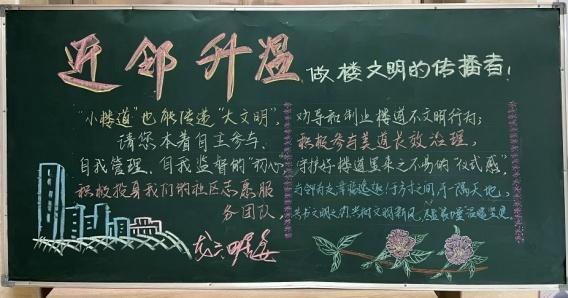 近邻升温，做楼文明的传播者！
"小楼道"也能传递"大文明"，
请您本着自主参与、
自我管理、自我监督的"初心"，
积极投身我们的社区志愿服
务团队，
劝导和制止楼道不文明行为；
积极参与美道长效治理，
守护好楼道里来之不易的"仪式感"，
与邻有
方寸之间 一隅天地，
共书文明之约 共树文明新风
龙六居委